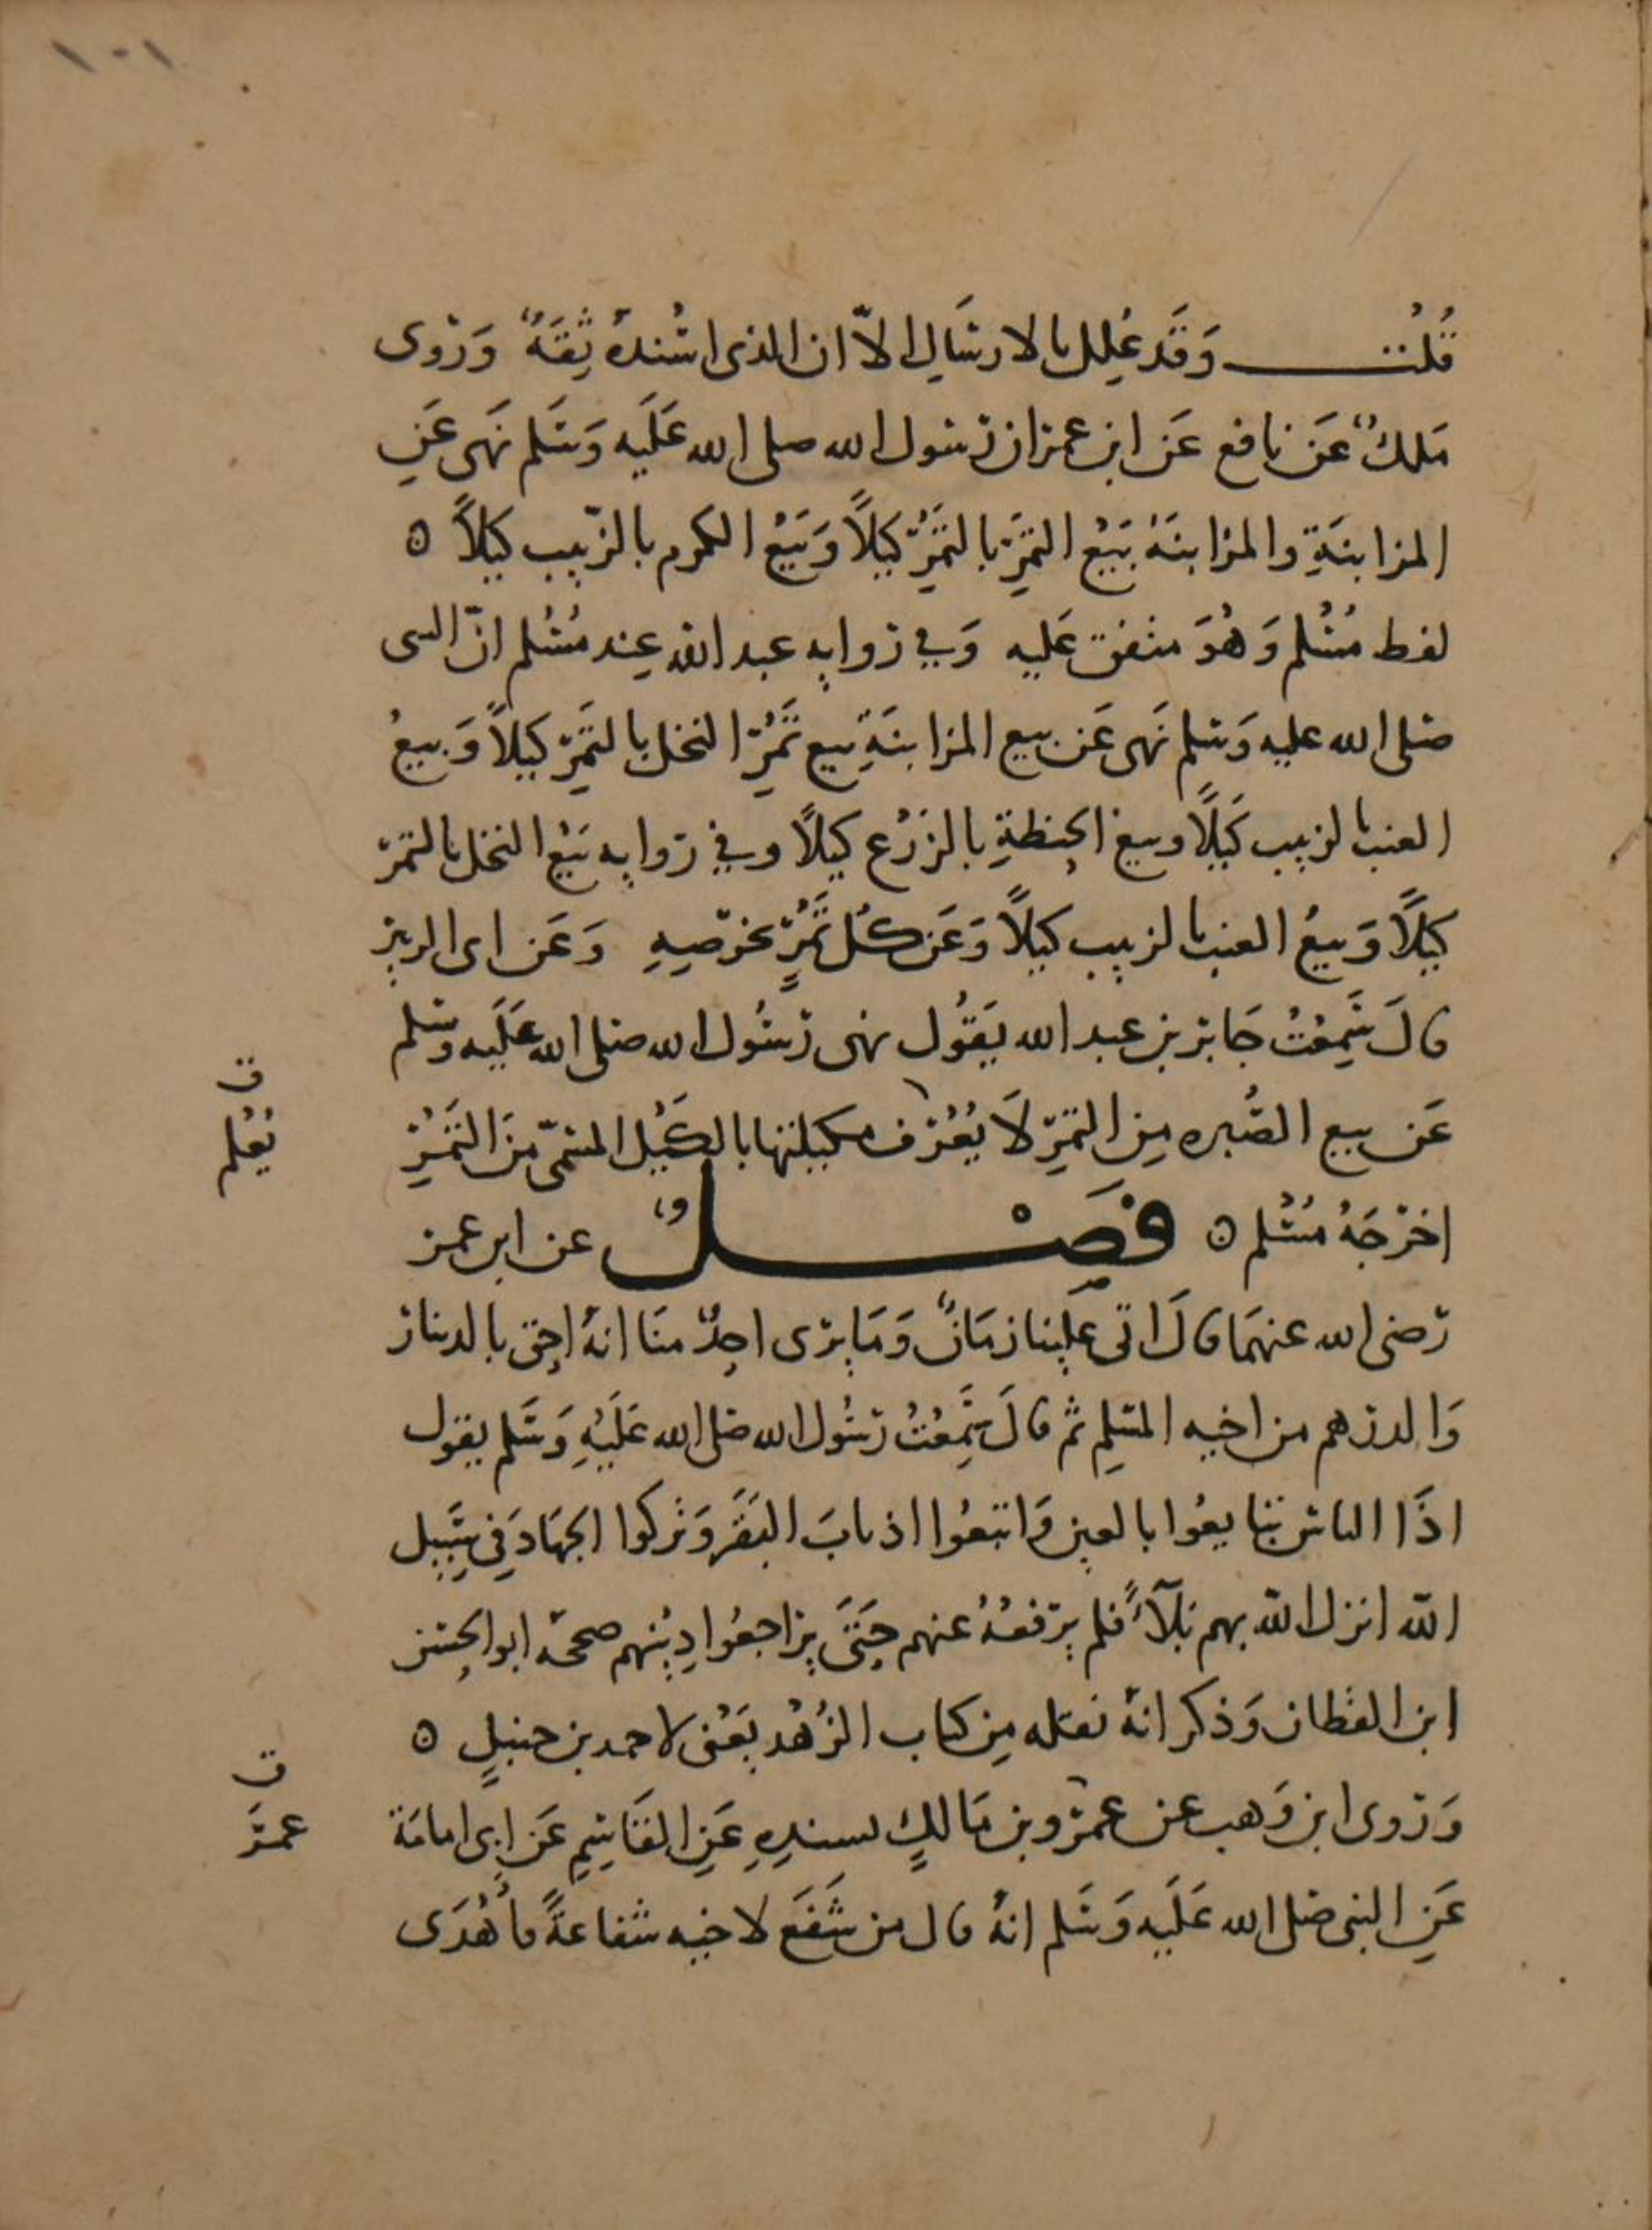 ١٠١
قُلْتُ وَقَد عُلِل بالارسَالِ الّا ان الذى اسْندهُ ثِقَةٌ وَرَوى
مَلكٌ عَن نافع عَن ابن عمر ان رسول الله صلى الله عَلَيه وَسَلم نَهى عَنِ
المزابنَةِ والمزابنَةُ بَيْعُ الثمَرِ بالتمْرِ كيْلًا وَبَيْعُ الكرم بالزّبيب كيْلًا ه
لفظ مُسْلم وَهُوَ متفق عَليه وَفي رواية عبد الله عِند مُسْلم انّ النبى
صلى الله عليه وَسلم نَهى عَن بيع المزابنَةِ بيع ثَمَرِ النخل بالتمْرِ كيلًا وَبيعُ
العنب بالزبيب كَيْلًا وبيع الحِنطةِ بالزَرْع كيلًا وفي رواية بَيْع النخل بالتمْر
كيْلًا وَبيعُ العنب بالزبيب كيلًا وَعَن كل ثَمَرٍ بخرْصِهِ وَعَن ابى الزبير
قالَ سَمِعْتُ جَابر بن عبد الله يَقُول نهى رَسُول الله صلى الله عَلَيه وسَلم
عَن بيع الصُّبره مِن التمرِ لَا يُعْرَف مكيلتها بالكَيْل المسَمّى مِنَ التَمْرِ
ن
يُعْلم
اخرَجَهُ مُسْلم ه فَصْلٌ عن ابن عمر
رَضى الله عنهمَا قالَ اتى عَلينا زمَانٌ وَمَا يرَى احدٌ منَا انهُ احق بالدينار
وَالدرهم من اخيه المسلم ثم قالَ سَمِعْتُ رَسُول الله صلى الله عَلَيْهِ وَسَلم يقول
اذَا الناس تبايعُوا بالعين وَاتبعُوا اذنابَ البَقَر وَتركوا الجهَادَ فى سَبيل
الله انزل الله بهم بَلآءً فلم يرْفعْهُ عنهم حَتىَّ يراجعُوا دِيْنهم صححه ابو الحسَن
ابن القطان وَذكر انهُ نقله مِن كتاب الزُهْد يَعْنى لاحمد بن حنبلٍ ه
وَرَوى ابن وَهب عن عمرو بن مَالكٍ بسندِهِ عَنِ القَاسِم عَن ابى امامَة
ن
عمَر
عَنِ النبى صلى الله عَلَيه وَسَلم انهُ قال من شَفَعَ لاخيه شفاعةً فأُهْدَى